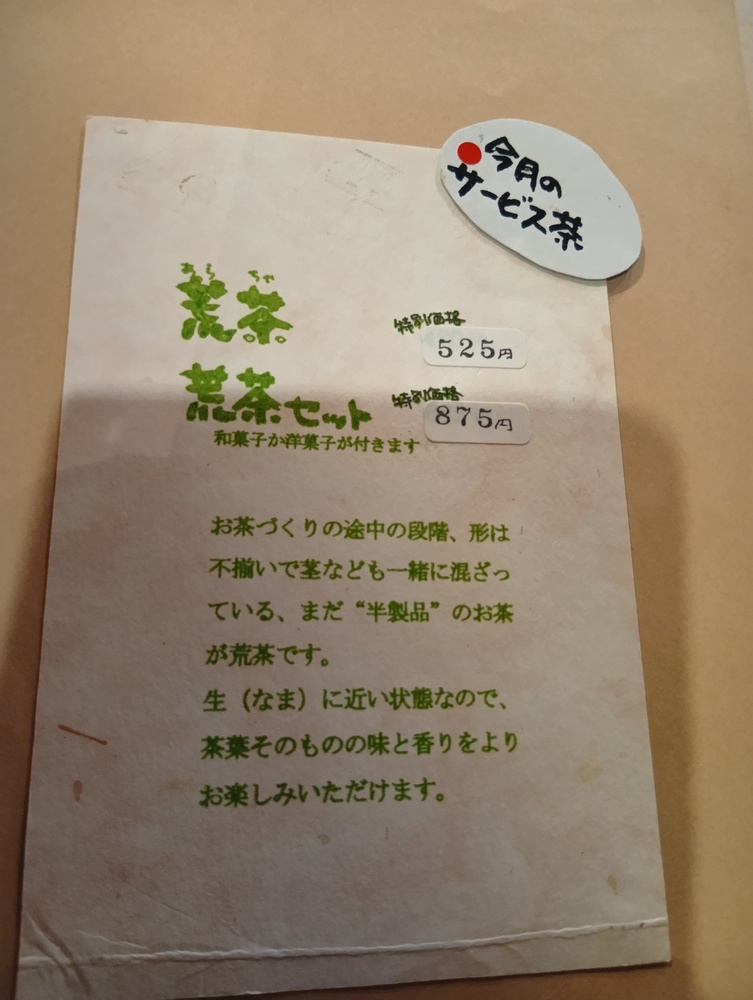 今月の
サービス茶
あら ちゃ
荒茶
特別価格
525円
荒茶セット
特別価格
875円
和菓子か洋菓子が付きます
お茶づくりの途中の段階、形は
不揃いで茎なども一緒に混ざっ
ている、まだ“半製品”のお茶
が荒茶です。
生（なま）に近い状態なので、
茶葉そのものの味と香りをより
お楽しみいただけます。